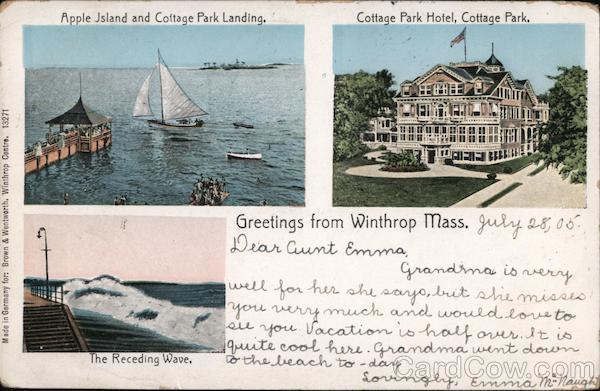 Apple Island and Cottage Park Landing.
Cottage Park Hotel, Cottage Park.
Made in Germany for: Brown & Wentworth, Winthrop Centre. 13271
Greetings from Winthrop Mass. July 28, 05.
Dear Aunt Emma,
Grandma is very
well for her she says, but she misses
you very much and would love to
see you Vacation is half over. It is
quite cool here. Grandma went down
to the beach to-day
Lovingly, Emma McNaugh
The Receding Wave.
CardCow.com